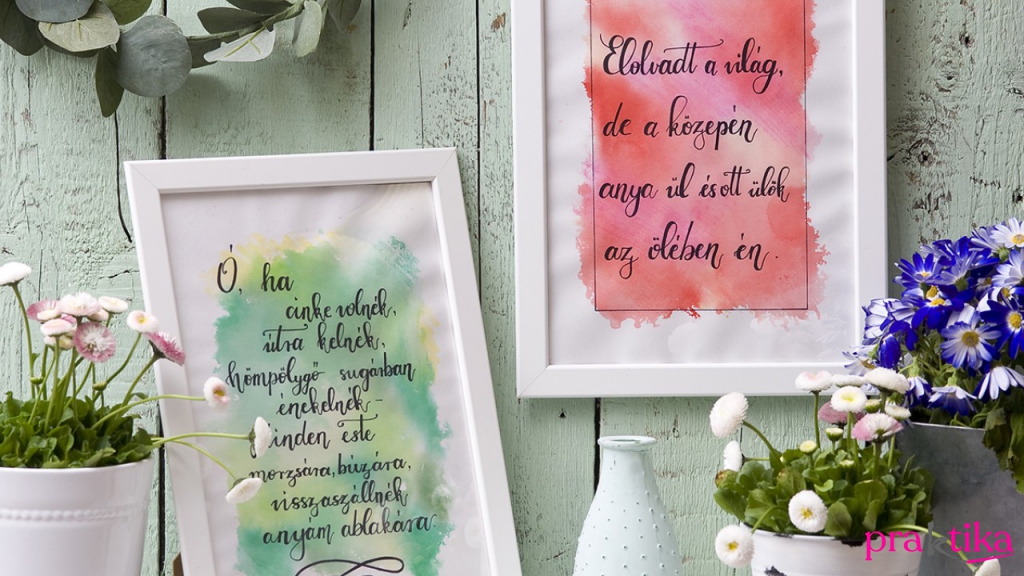 Elolvadt a világ,
de a közepén
anya ül és ott ülök
az ölében én.
Ó, ha
cinke volnék,
útra kelnék,
hömpölygő sugárban
énekelnék –
minden este
morzsára, búzára,
visszaszállnék
anyám ablakára.
praktika